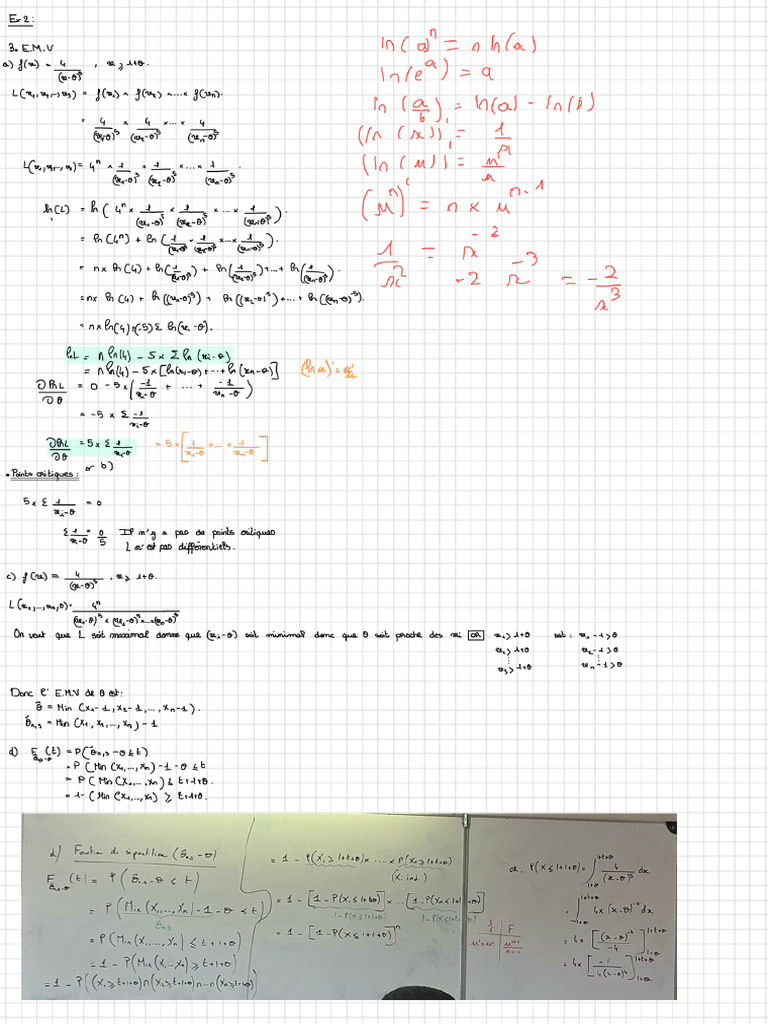 Ex 2:
3. E.M.V
a) f(x) = 4/(x-θ)^5 , x ≥ 1+θ.
L(x1, x2, ..., x3) = f(x1) × f(x2) × ... × f(xn).
= 4/(x1-θ)^5 × 4/(x2-θ)^5 × ... × 4/(xn-θ)^5
L(x1, x2, ..., xn) = 4^n × 1/(x1-θ)^5 × 1/(x2-θ)^5 × ... × 1/(xn-θ)^5
ln(L) = ln(4^n × 1/(x1-θ)^5 × 1/(x2-θ)^5 × ... × 1/(xn-θ)^5).
= ln(4^n) + ln(1/(x1-θ)^5 × 1/(x2-θ)^5 × ... × 1/(xn-θ)^5).
= n × ln(4) + ln(1/(x1-θ)^5) + ln(1/(x2-θ)^5) + ... + ln(1/(xn-θ)^5).
= n × ln(4) + ln((x1-θ)^-5) + ln((x2-θ)^-5) + ... + ln((xn-θ)^-5).
= n × ln(4) + (-5) Σ ln(xi-θ).
lnL = n ln(4) - 5 × Σ ln(xi-θ)
= n ln(4) - 5 × [ln(x1-θ) + ... + ln(xn-θ)] (ln u)' = u'/u
∂lnL/∂θ = 0 - 5 × (-1/(x1-θ) + ... + -1/(xn-θ))
= -5 × Σ -1/(xi-θ)
∂lnL/∂θ = 5 × Σ 1/(xi-θ) = 5 × [1/(x1-θ) + ... + 1/(xn-θ)]
• Points critiques : b)
5 × Σ 1/(xi-θ) = 0
Σ 1/(xi-θ) = 0/5 Il n'y a pas de points critiques
L n'est pas différentiels.
c) f(x) = 4/(x-θ)^5 , x ≥ 1+θ.
L(x1, ..., xn, θ) = 4^n/((x1-θ)^5 × (x2-θ)^5 × ... × (xn-θ)^5)
On veut que L soit maximal donc que (xi-θ) soit minimal donc que θ soit proche des xi OR x1 > 1+θ soit : x1 - 1 > θ
x2 > 1+θ x2 - 1 > θ
⋮ ⋮
x3 > 1+θ xn - 1 > θ
Donc l'E.M.V de θ est :
θ̂ = Min(x1-1, x2-1, ..., xn-1).
θ̂n,3 = Min(X1, X2, ..., Xn) - 1
d) F_(θ̂n,3-θ)(t) = P(θ̂n,3 - θ ≤ t)
= P(Min(X1, ..., Xn) - 1 - θ ≤ t
= P(Min(X1, ..., Xn) ≤ t+1+θ.
= 1 - (Min(X1, ..., Xn) ≥ t+1+θ.
ln(a)^n = n ln(a)
ln(e^a) = a
ln(a/b) = ln(a) - ln(b)
(ln(x))' = 1/x
(ln(u))' = u'/u
(u^n)' = n × u^(n-1)
1/x² = x^-2
-2 x^-3 = -2/x³
d) Fonction de répartition (θ̂n,3 - θ)
F_(θ̂n,3-θ)(t) = P(θ̂n,3 - θ ≤ t)
= P(Min(X1, ..., Xn) - 1 - θ ≤ t)
θ̂n,3
= P(Min(X1, ..., Xn) ≤ t+1+θ)
= 1 - P(Min(X1, ..., Xn) ≥ t+1+θ)
= 1 - P((X1 ≥ t+1+θ) ∩ (X2 ≥ t+1+θ) ∩ ... ∩ (Xn ≥ t+1+θ))
= 1 - P(X1 ≥ 1+t+θ) × ... × P(Xn ≥ 1+t+θ)
(Xi ind.)
= 1 - [1 - P(X1 ≤ 1+t+θ)] × ... [1 - P(Xn ≤ 1+t+θ)]
1 - P(X ≤ 1+t+θ) 1 - P(X ≤ 1+t+θ)
= 1 - [1 - P(X ≤ 1+t+θ)]^n
f F
u' × u^n u^(n+1)/(n+1)
or, P(X ≤ 1+t+θ) = ∫_(1+θ)^(1+t+θ) 4/(x-θ)^5 dx
= ∫_(1+θ)^(1+t+θ) 4 × (x-θ)^-5 dx
= 4 × [(x-θ)^-4/-4]_(1+θ)^(1+t+θ)
= 4 × [-1/(4(x-θ)^4)]_(1+θ)^(1+t+θ)